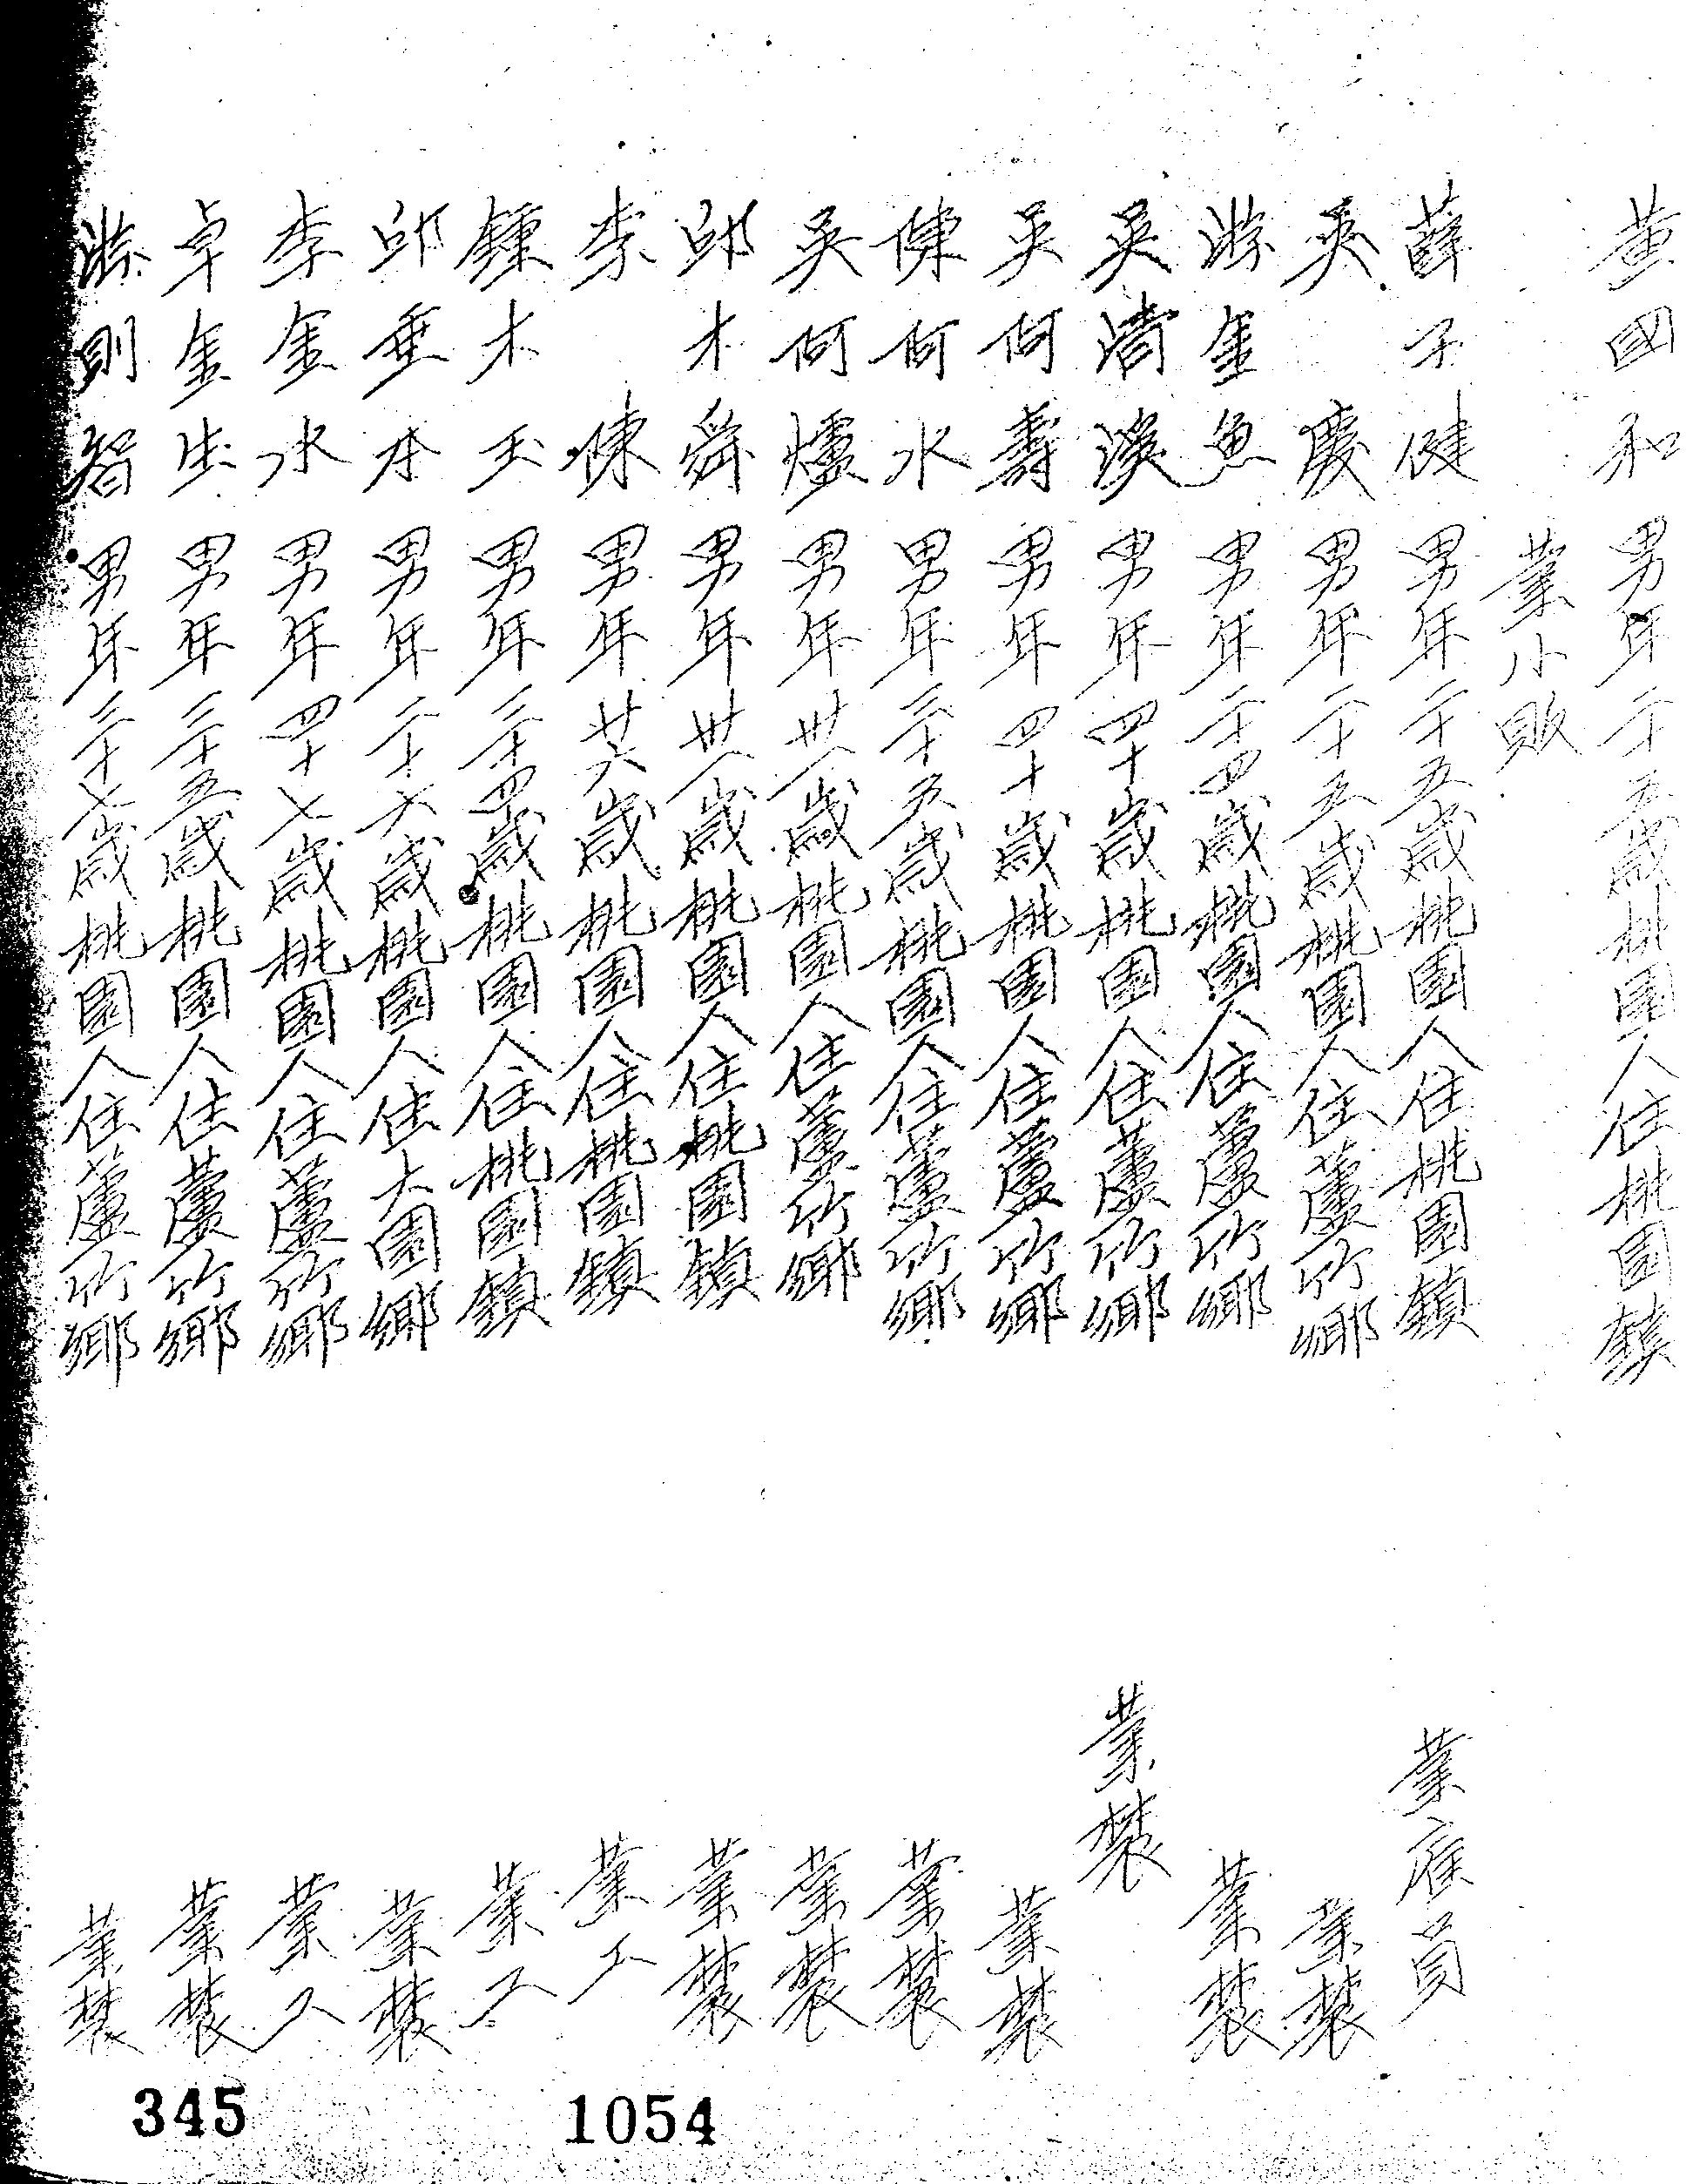 黃國和男年二十五歲桃園人住桃園鎮
業小販
薛子健男年二十五歲桃園人住桃園鎮 業雇員
吳慶男年二十五歲桃園人住蘆竹鄉 業農
游金魚男年二十四歲桃園人住蘆竹鄉 業農
吳清漢男年四十歲桃園人住蘆竹鄉 業農
吳阿壽男年四十歲桃園人住蘆竹鄉 業農
陳阿水男年三十五歲桃園人住蘆竹鄉 業農
吳阿爐男年卅一歲桃園人住蘆竹鄉 業農
邱木舜男年卅一歲桃園人住桃園鎮 業農
李 男年廿六歲桃園人住桃園鎮 業工
鍾木玉男年三十四歲桃園人住桃園鎮 業工
邱垂本男年二十六歲桃園人住大園鄉 業農
李金水男年四十七歲桃園人住蘆竹鄉 業工
卓金生男年三十五歲桃園人住蘆竹鄉 業農
游則智男年三十七歲桃園人住蘆竹鄉 業農
345 1054